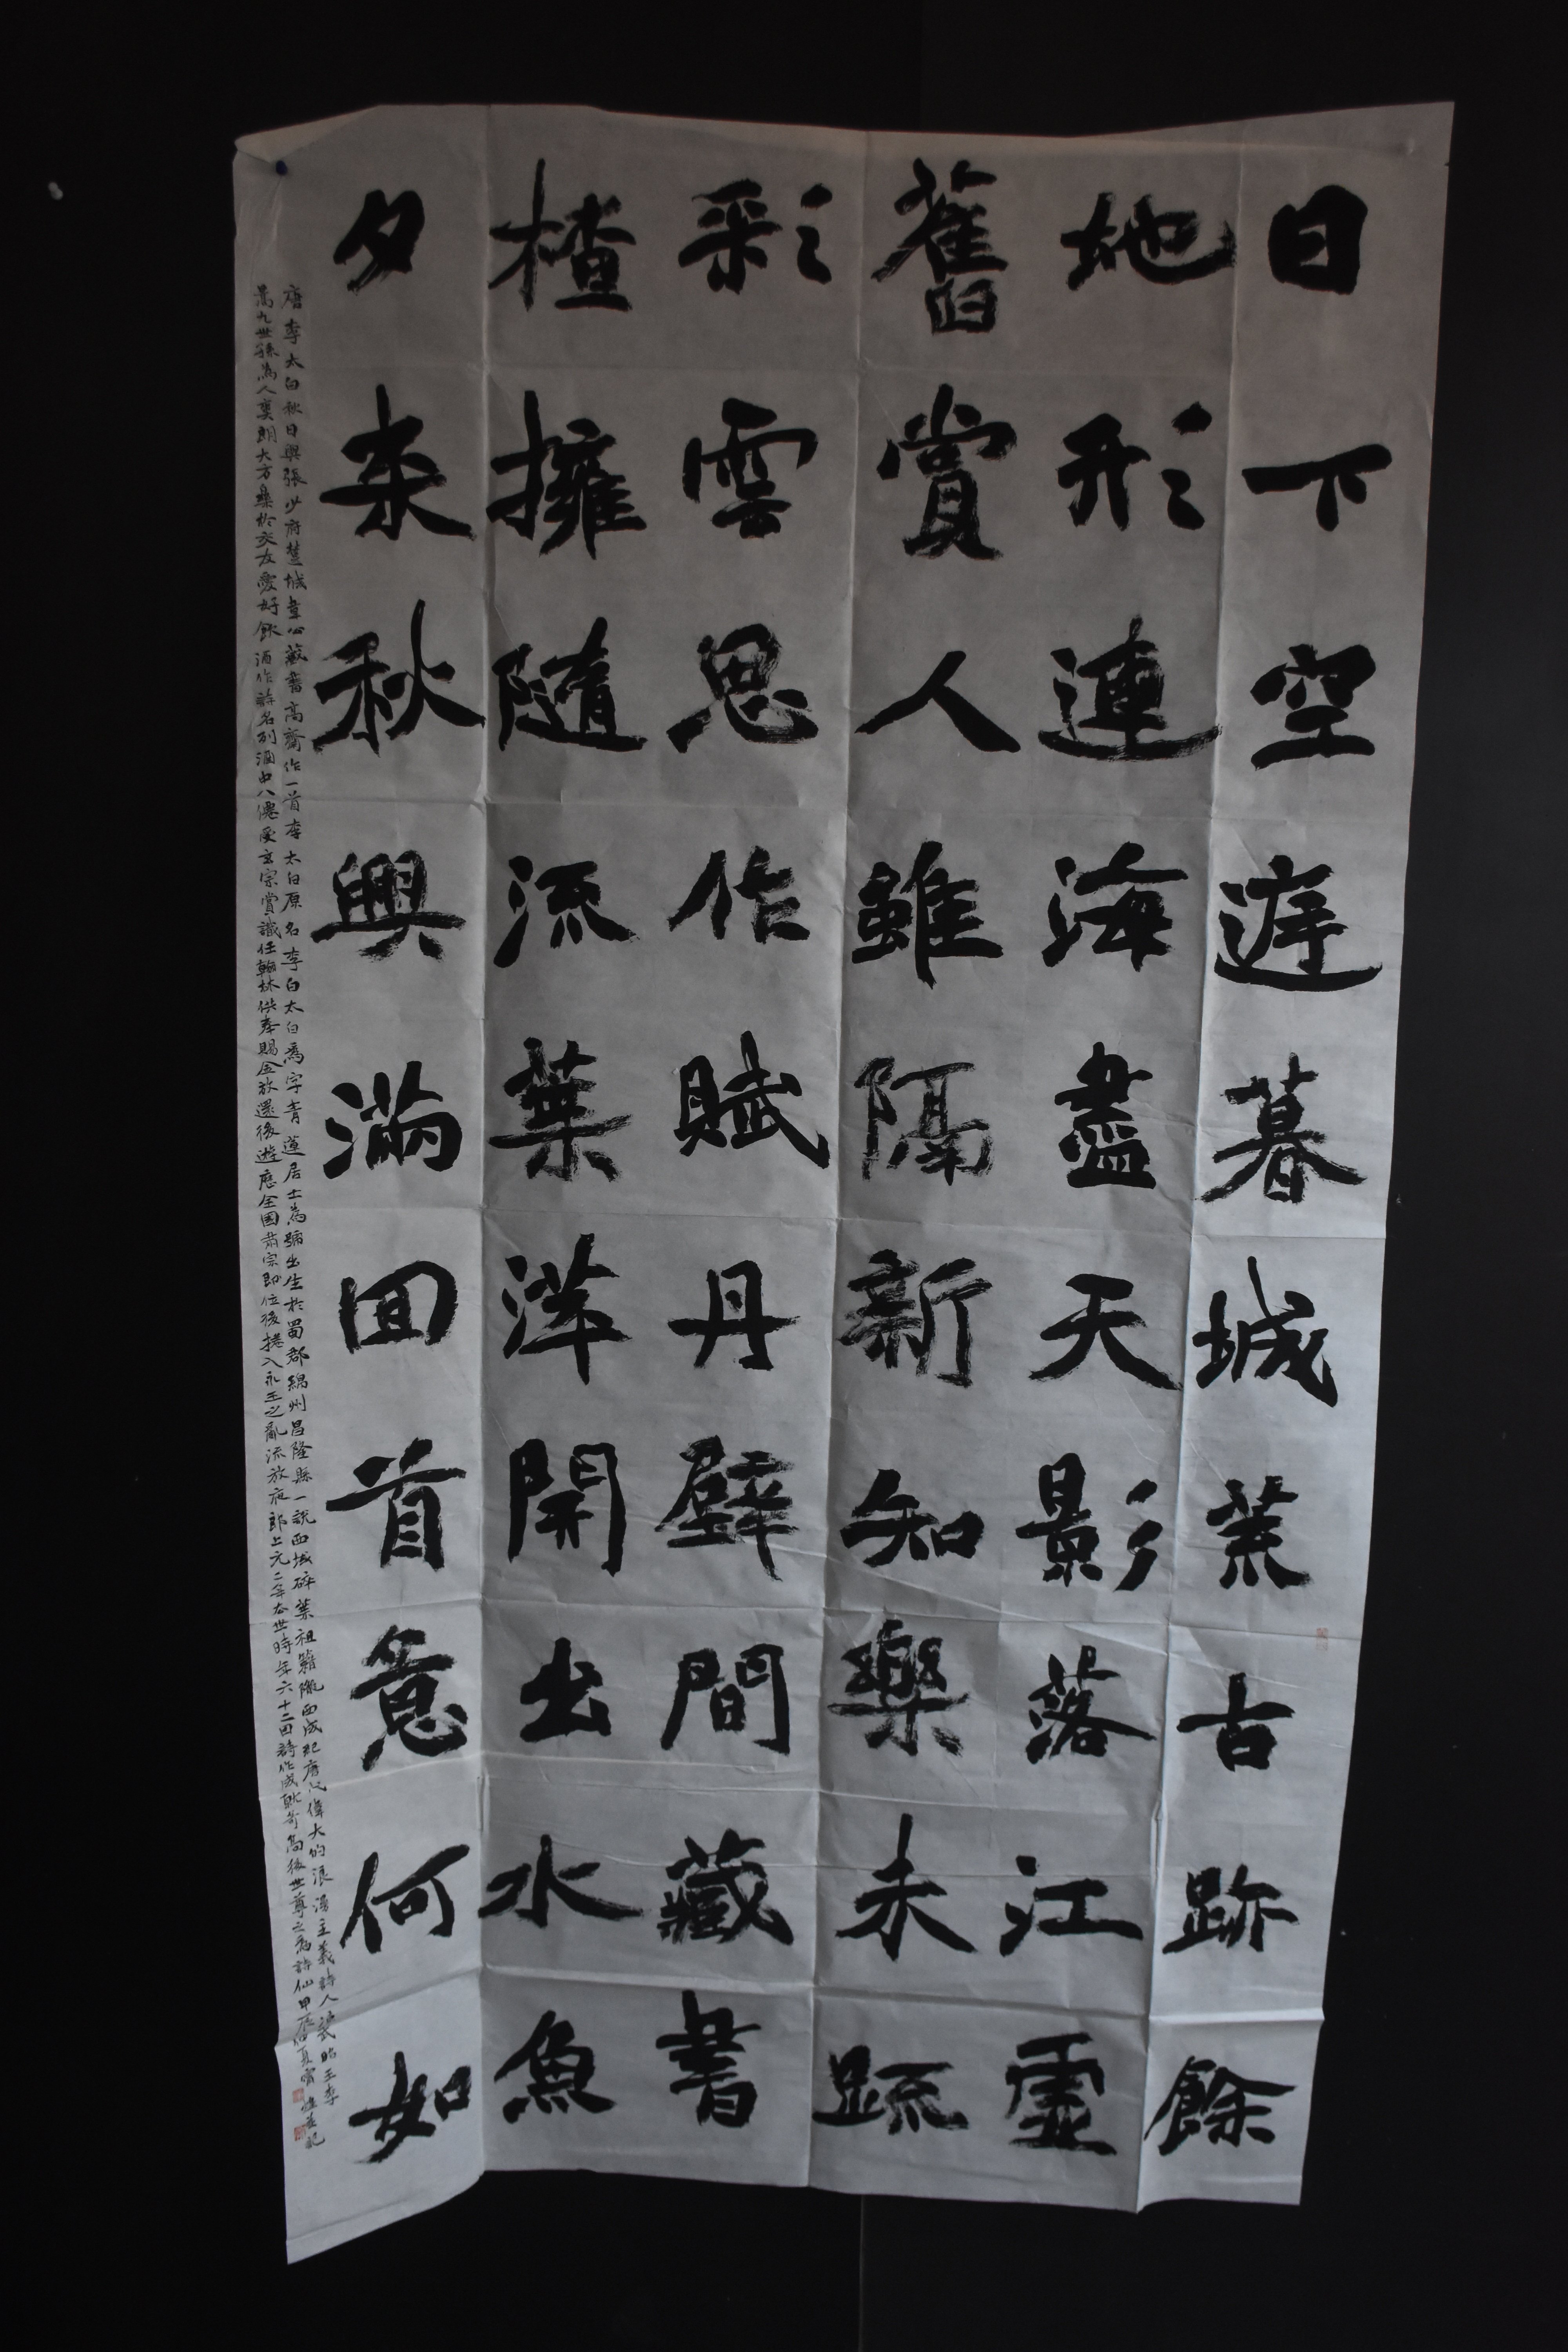 日下空遊暮城荒古跡餘
她形連海盡天影落江虛
舊賞人雖隔新知樂未疏
彩雲思作賦丹壁間藏書
楂擁隨流葉萍開出水魚
夕來秋興滿回首意何如
唐李太白秋日與張少府楚城韋公藏書高齋作一首李太白原名李白太白為字青蓮居士為號出生於蜀郡綿州昌隆縣一說西域碎葉祖籍隴西成紀唐代偉大的浪漫主義詩人武昭王李
暠九世孫為人爽朗大方樂於交友愛好飲酒作詩名列酒中八僊受玄宗賞識任翰林供奉賜金放還後遊歷全國肅宗即位後捲入永王之亂流放夜郎上元二年去世時年六十二因詩作成就奇高後世尊之為詩仙甲辰仲夏